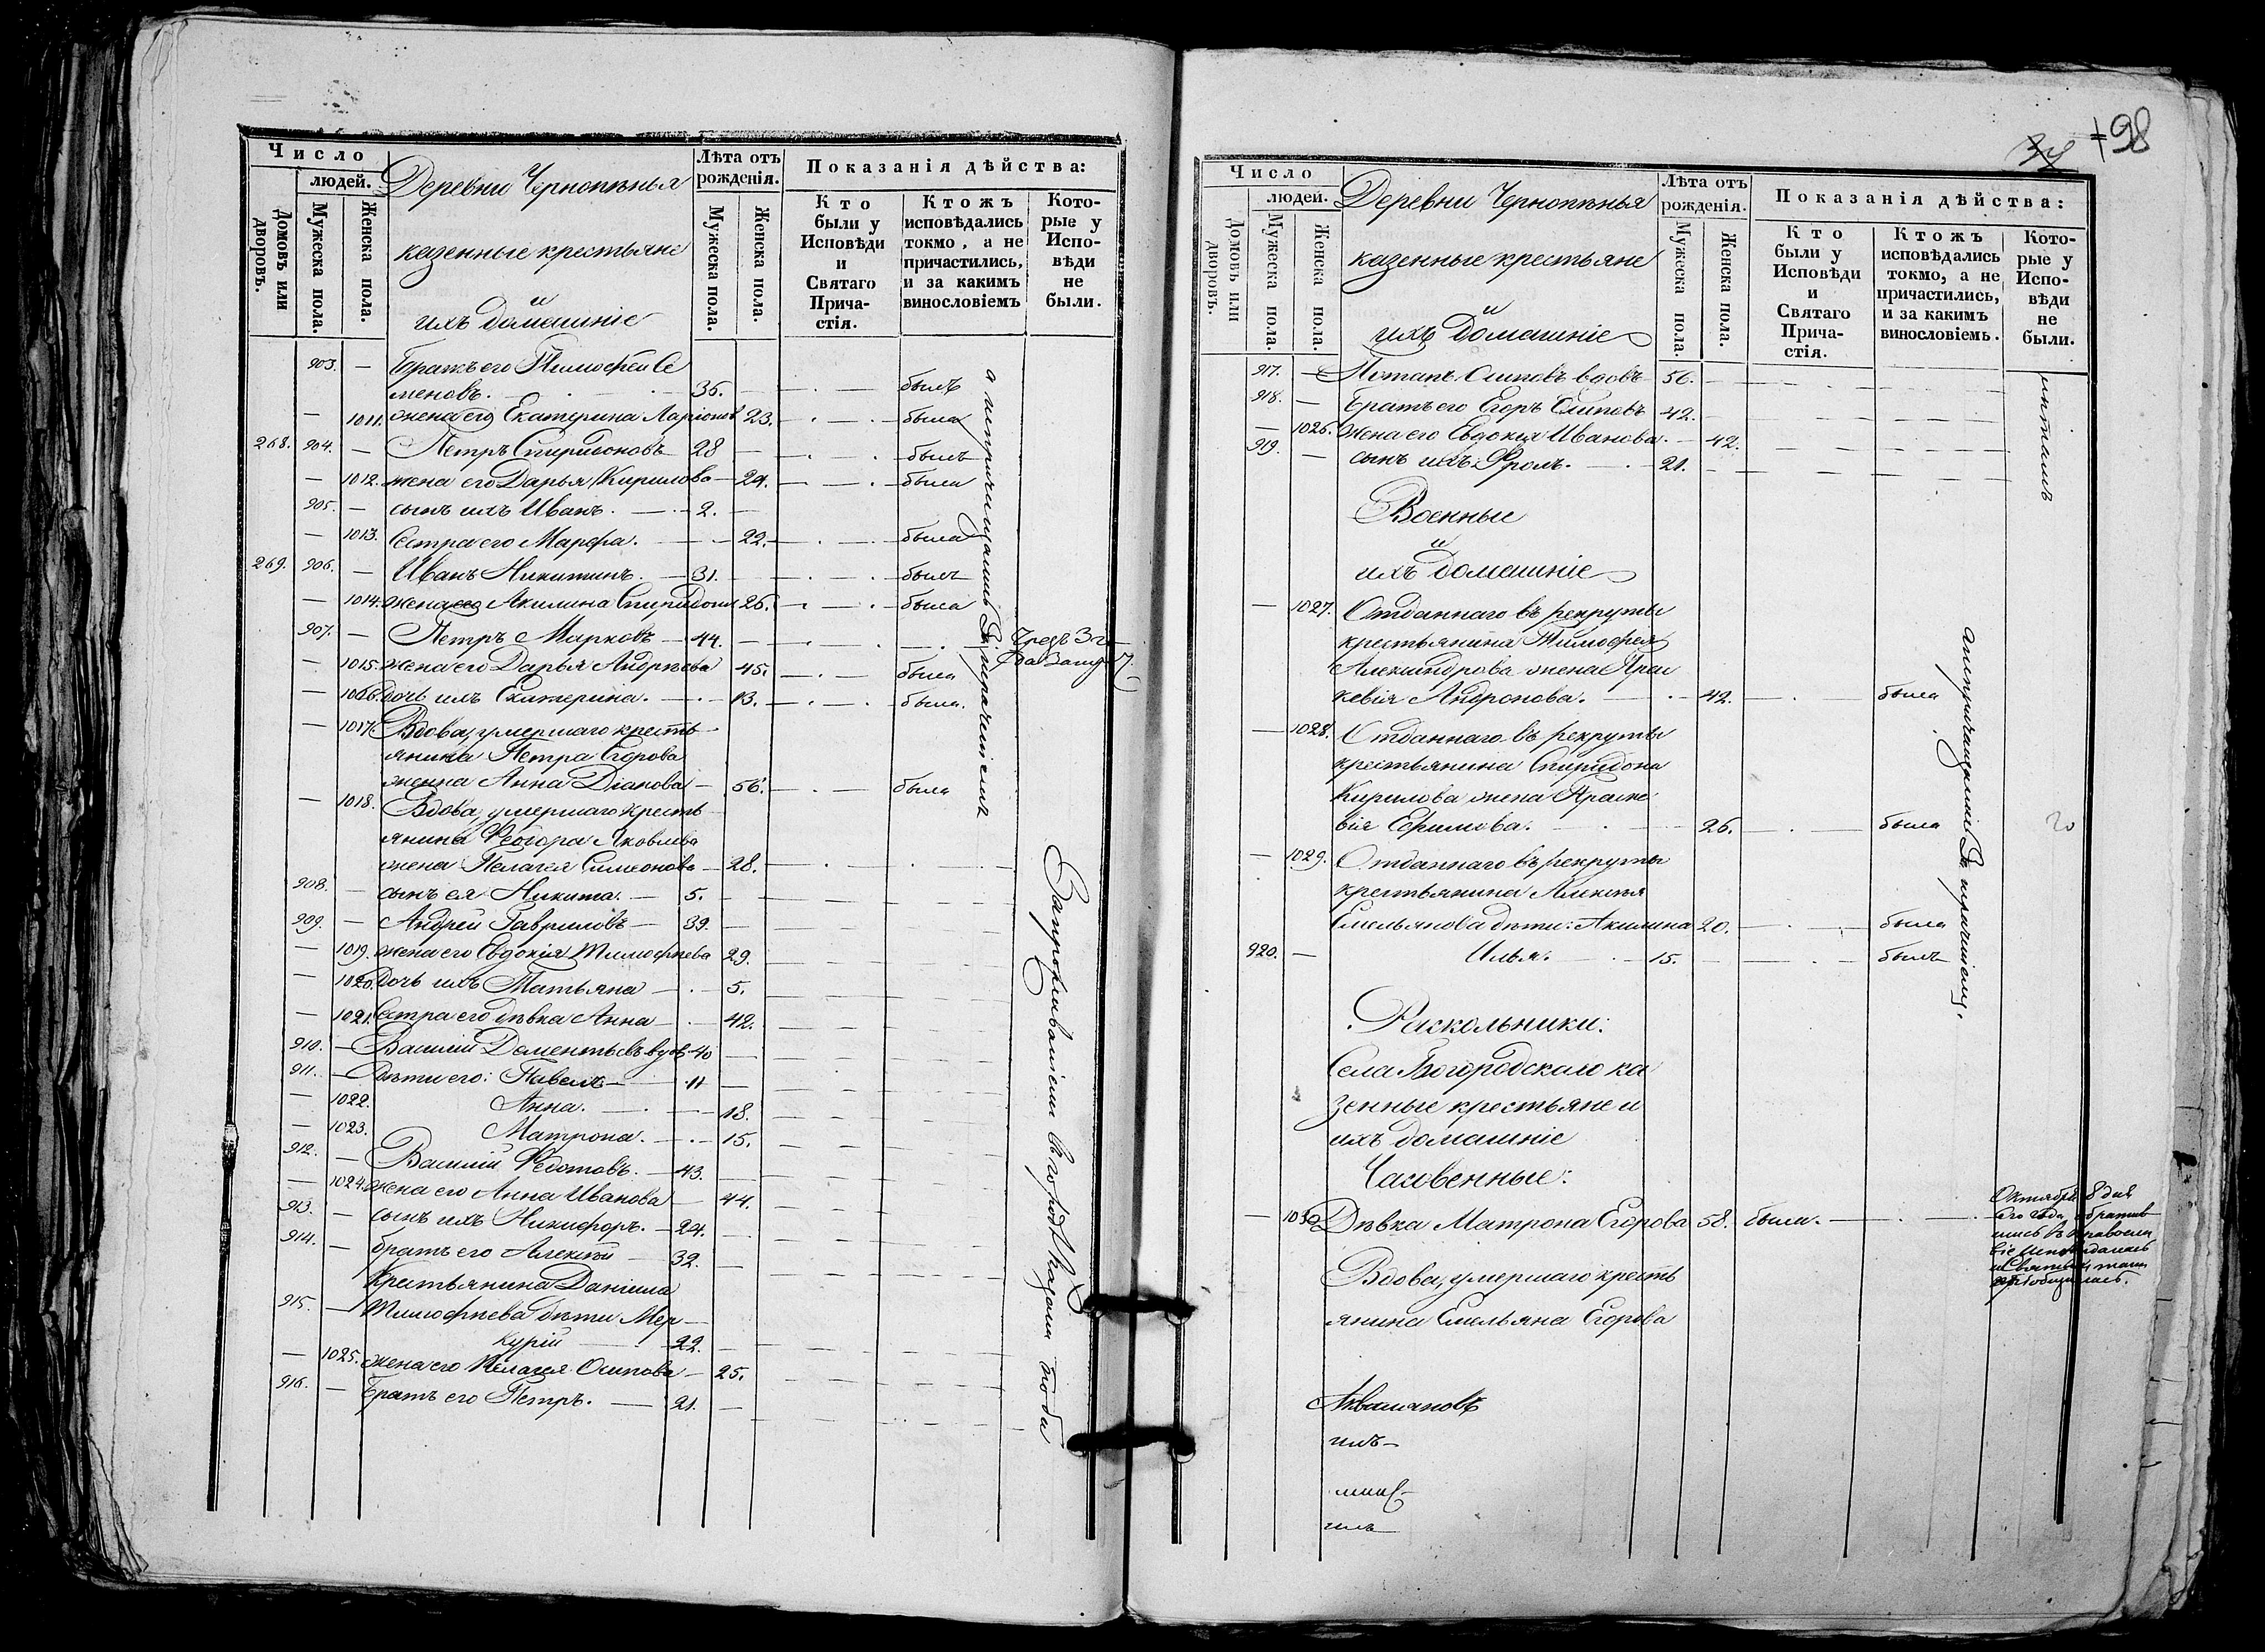 Число
людей.
Домовъ или дворовъ.
Мужеска пола.
Женска пола.
Деревни Чернопенья
казенные крестьяне
и
ихъ домашніе
Лѣта отъ рожденія.
Мужеска пола.
Женска пола.
Показанія дѣйства:
Кто были у Исповѣди и Святаго Прича-стія.
Ктожъ исповѣдались токмо, а не причастились, и за какимъ винословіемъ
Кото-рые у Испо-вѣди не были.
903. — Братъ его Тимофей Се
меновъ. 35. — былъ
— 1011. жена его Екатерина Ларіонов 23. — была
268. 904. — Петръ Спиридоновъ 28 — былъ
— 1012. жена его Дарья Кирилова — 24. — была
905. — сынъ ихъ Иванъ. — 2. —
— 1013. Сестра его Марфа. — 22. — была
269. 906. — Иванъ Никитинъ. — 31. — былъ
— 1014. жена его Акилина Спиридон 26. — была
907. — Петръ Марковъ — 44. —
— 1015. жена его Дарья Андрѣева 45. — была
— 1016. дочь ихъ Екатерина. — 13. — была.
— 1017. Вдова, умершаго кресть
янина Петра Егорова
жена Анна Діанова — 56. — была
— 1018. Вдова, умершаго кресть
янина Ѳеодора Яковлева
жена Пелагея Симеонова — 28. —
908. — сынъ ея Никита. — 5. —
909. — Андрей Гавриловъ — 39. —
— 1019. жена его Евдокія Тимофѣева 29.
— 1020. Дочь ихъ Татьяна — 5.
— 1021. Сестра его дѣвка Анна — 42.
910. — Василій Дементьевъ вдов 40 —
911. — Дѣти его: Павелъ — 11 —
— 1022. Анна. — 18.
— 1023. Матрона. — 15.
912. — Василій Ѳедотовъ. — 43. —
— 1024. жена его Анна Иванова — 44.
913. — сынъ ихъ Никифоръ. — 24. —
914. — братъ его Алексѣй — 32. —
Крестьянина Даніила
915. — Тимофѣева дѣти Мер —
курій — 22. —
— 1025. жена его Пелагея Осипова — 25.
916. — Братъ его Петръ. — 21. —
98
Число
людей.
Домовъ или дворовъ.
Мужеска пола.
Женска пола.
Деревни Чернопенья
казенные крестьяне
и
ихъ домашніе
Лѣта отъ рожденія.
Мужеска пола.
Женска пола.
Показанія дѣйства:
Кто были у Исповѣди и Святаго Прича-стія.
Ктожъ исповѣдались токмо, а не причастились, и за какимъ винословіемъ.
Кото-рые у Испо-вѣди не были.
917. — Потапъ Осиповъ вдовъ 56. —
918. — Братъ его Егоръ Осиповъ 42. —
— 1026. Жена его Евдокія Иванова. — 42.
919. — сынъ ихъ Фролъ. — 21. —
Военные
и
ихъ домашніе
— 1027. Отданнаго въ рекруты
крестьянина Тимофея
Александрова жена Прас
кевія Андронова. — 42. — была
— 1028. Отданнаго въ рекруты
крестьянина Спиридона
Кирилова жена Праске
вія Ефимова. — 26. — была
— 1029. Отданнаго въ рекруты
крестьянина Алексѣя
Емельянова дѣти: Акилина 20. — была
920. — Илья. — 15. — былъ
Раскольники:
Села Богородскаго ка
зенные крестьяне и
ихъ домашніе
Часовенные:
— 1030. Дѣвка Матрона Егорова 58. была. —
Октября 8 дня
сего года, обратив
шись въ православ
іе исповѣдалась
и Святыхъ таин
Вдова, умершаго кресть
янина Емельяна Егорова